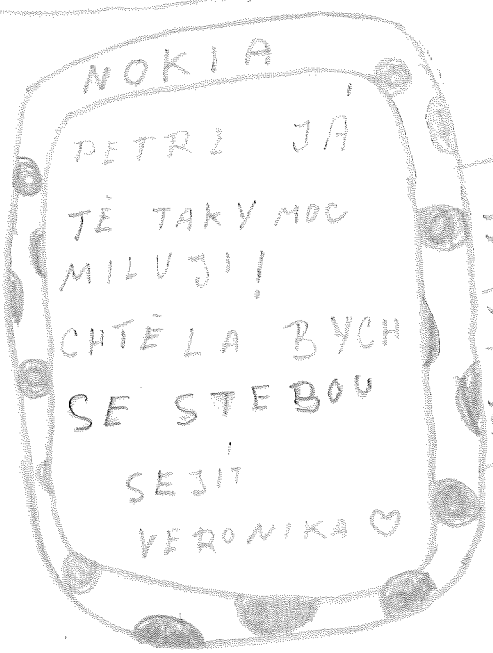 NOKIA
PETRE JÁ
TĚ TAKY MOC
MILUJI!
CHTĚLA BYCH
SE STEBOU
SEJÍT
VERONIKA ♡